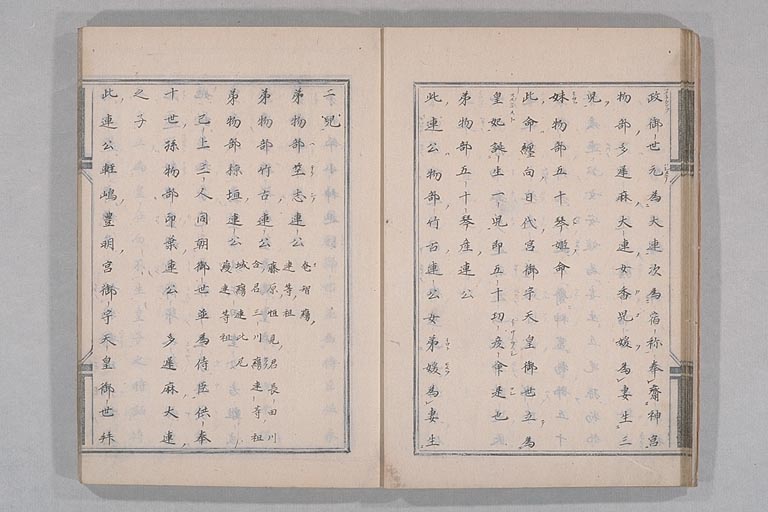 政御世元為大連次為宿祢奉齋神宮
物部多遲麻大連女香児媛為妻生三
児
妹物部五十琴姫命
此命纒向日代宮御宇天皇御世立為
皇妃誕生一児即五十功彦命是也
弟物部五十琴彦連公
此連公物部竹古連公女弟媛為妻生
二児
弟物部竺志連公 奄智蘰連等祖
弟物部竹古連公 藤原恒見君長田川合君三川蘰連等祖
弟物部椋垣連公 城蘰連比尼蘰連等祖
已上三人同朝御世並為侍臣供奉
十世孫物部印葉連公多遲麻大連
之子
此連公軽嶋豊明宮御宇天皇御世拜